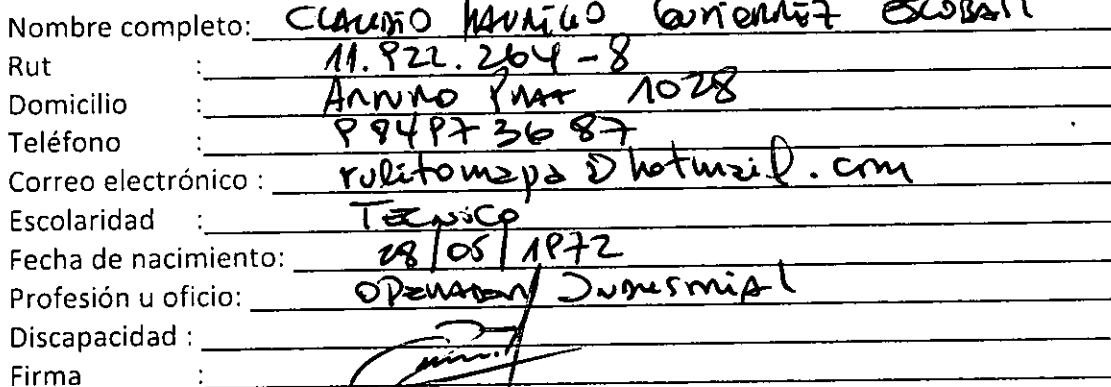 Nombre completo: CLAUDIO MAURICIO GUTIERREZ ESCOBAR
Rut : 11.922.264-8
Domicilio : ARTURO PRAT 1028
Teléfono : 984973687
Correo electrónico : rulitomapa@hotmail.com
Escolaridad : TECNICO
Fecha de nacimiento: 28/05/1972
Profesión u oficio: OPERADOR INDUSTRIAL
Discapacidad :
Firma :